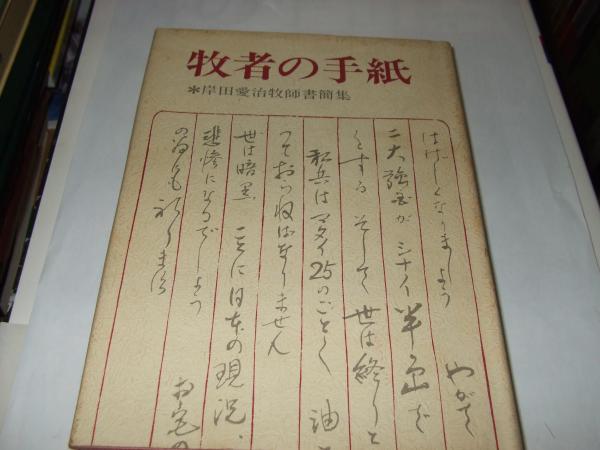 牧者の手紙
*岸田愛治牧師書簡集
はげしくなりましよう やがて
二大強国がシナイ半島で
くとする そして世は終りと
私共はマタイ25のごとく 油
つておらねばなりません
世は暗黒 ことに日本の現況、
悲惨になるでしよう
の為にも祈ります お宅の